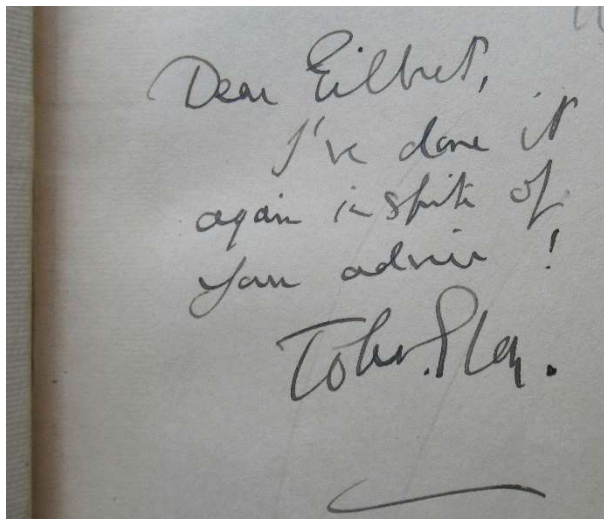 Dear Gilbert,
I've done it
again in spite of
your advice !